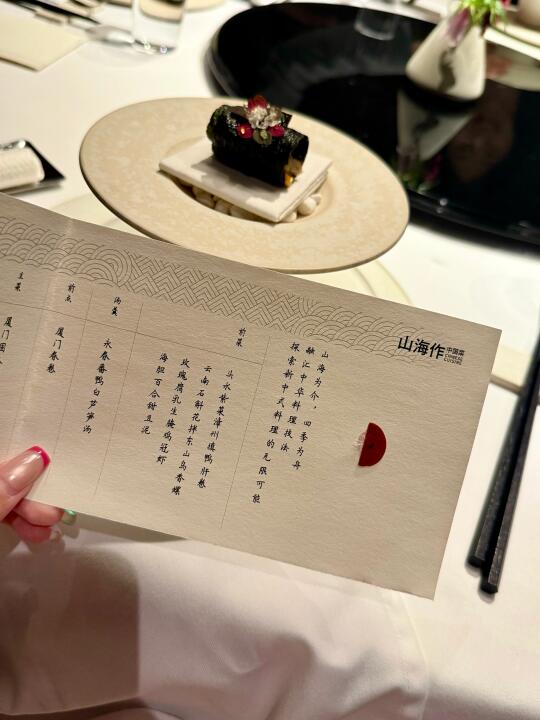 山海作
中国菜
CHINESE CUISINE
山海为介，四季为舟
融汇中华料理技法
探索新中式料理的无限可能
前菜
头水紫菜漳州填鸭肝卷
云南石斛花拌东山乌香螺
玫瑰腐乳生腌鸡冠虾
海胆百合甜豆泥
汤羹
永春番鸭白芦笋汤
前点
厦门春卷
主菜
厦门